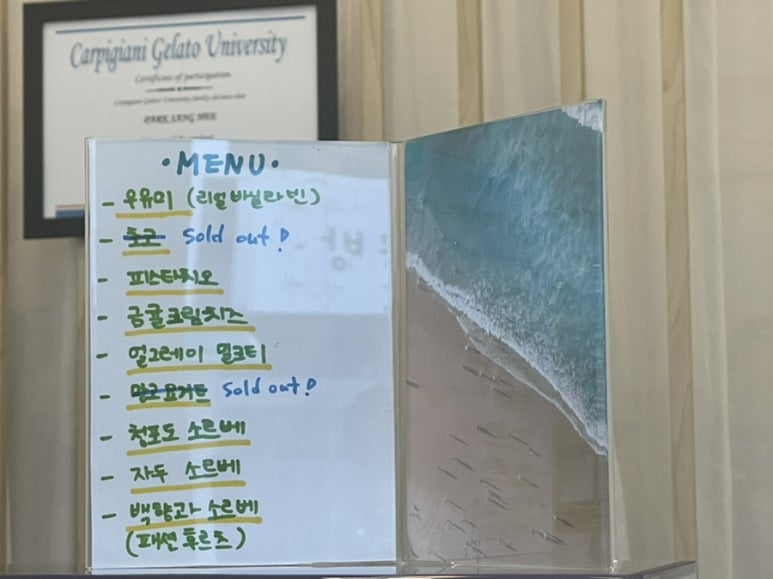 Carpigiani Gelato University
Certificate of participation
Carpigiani Gelato University hereby declares that
• MENU •
- 우유미 (리얼바닐라빈)
- 쪼코 Sold out!
- 피스타치오
- 금귤크림치즈
- 얼그레이 밀크티
- 망고요거트 Sold out!
- 청포도 소르베
- 자두 소르베
- 백향과 소르베
(패션후르츠)